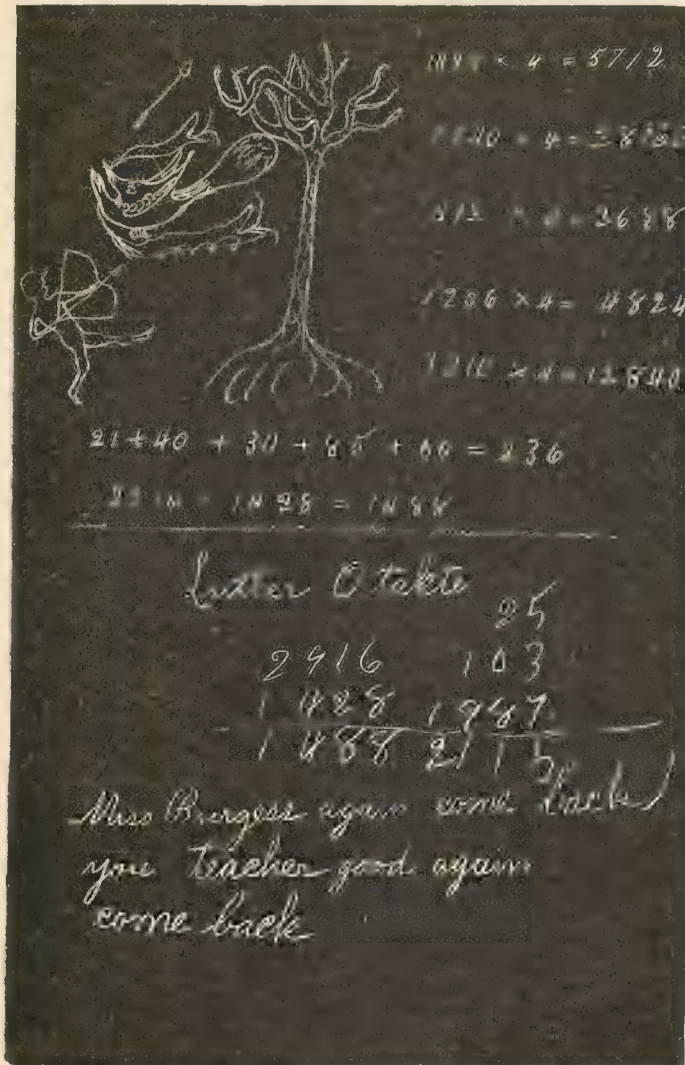 × 4 = 5712
× 4 =
× 4 = 2688
1206 × 4 = 4824
3210 × 4 = 12840
21 + 40 + 30 + 85 + 60 = 236
2916 - 1428 = 1488
Luther Otekte
25
2916 103
1428 1987
1488 2115
Miss Burgess again come back
you teacher good again
come back